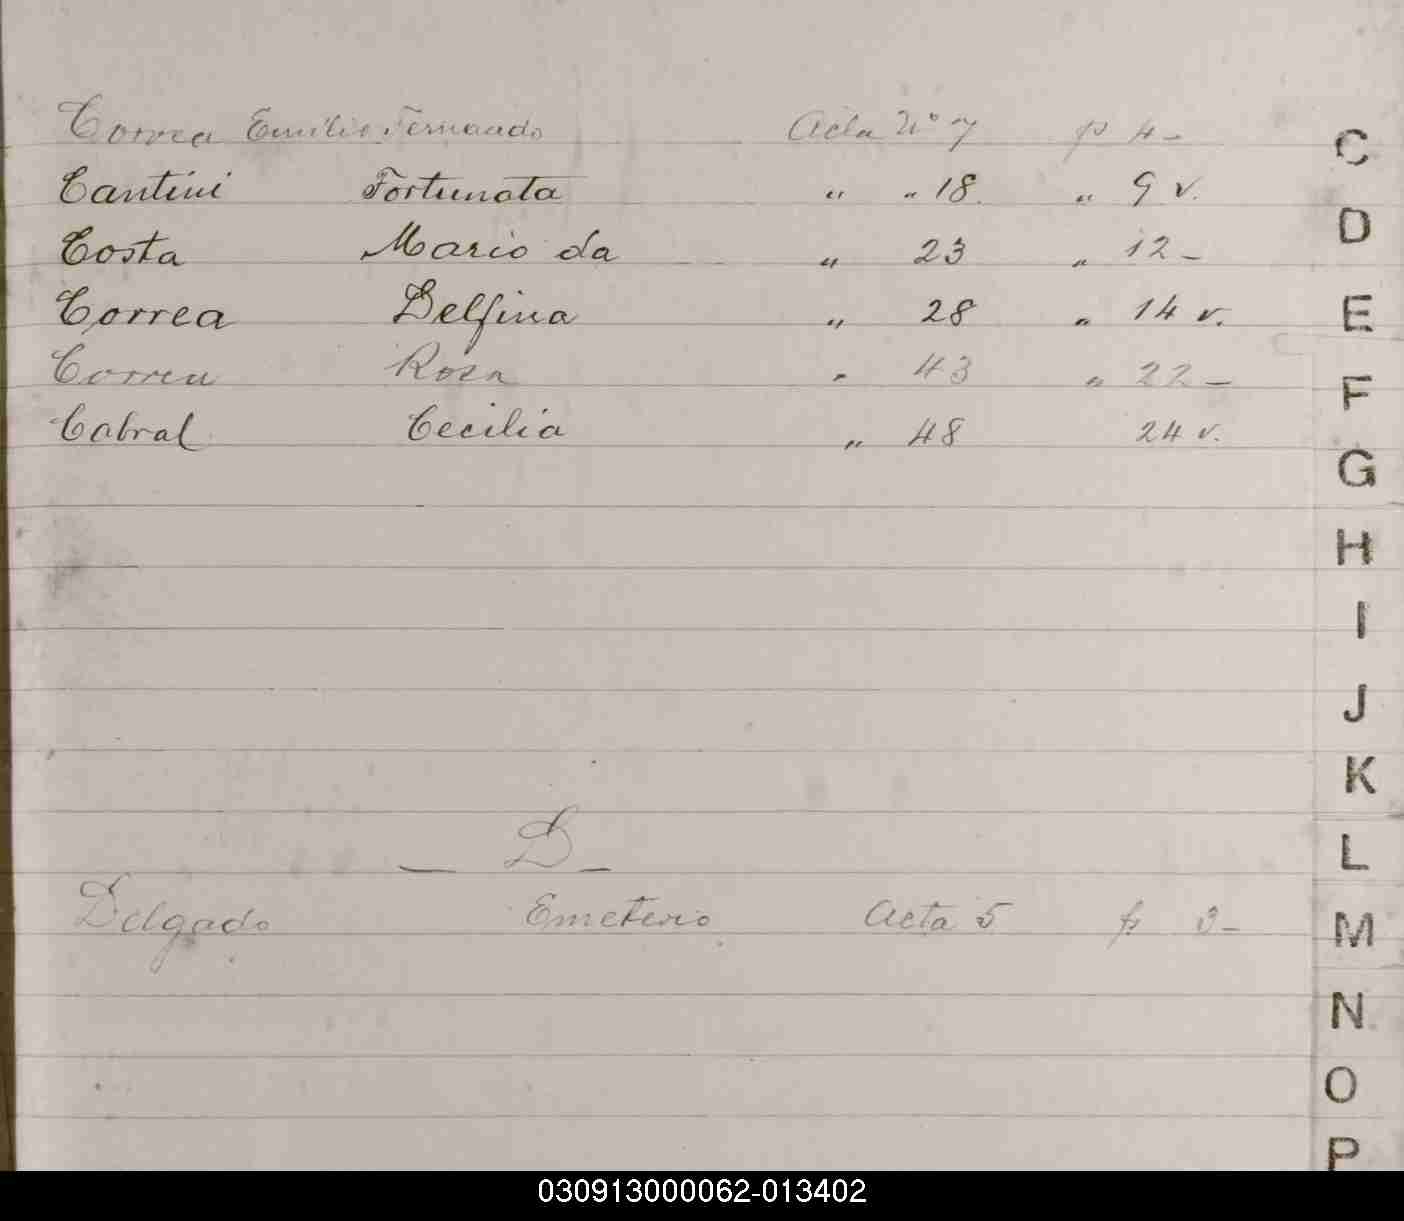 Correa Emilio Fernando Acta Nº 7 p 4 -
Cantini Fortunata " " 18. " 9 v.
Costa Mario da " 23 " 12 -
Correa Delfina " 28 " 14 v.
Correa Rosa " 43 " 22 -
Cabral Cecilia " 48 24 v.
- D -
Delgado Emeterio Acta 5 p 3 -
C
D
E
F
G
H
I
J
K
L
M
N
O
P
030913000062-013402